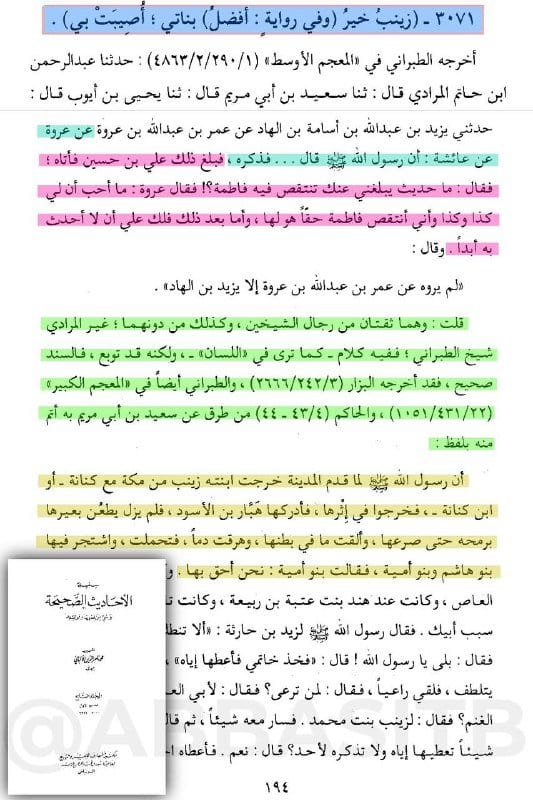 ٣٠٧١ ـ (زينبُ خيرُ (وفي رواية : أفضلُ) بناتي ؛ أُصِيبَتْ بي) .
أخرجه الطبراني في «المعجم الأوسط» (٤٨٦٣/٢/٢٩٠/١) : حدثنا عبدالرحمن
ابن حاتم المرادي قال : ثنا سعيد بن أبي مريم قال : ثنا يحيى بن أيوب قال :
حدثني يزيد بن عبدالله بن أسامة بن الهاد عن عمر بن عبدالله بن عروة عن عروة
عن عائشة : أن رسول الله ﷺ قال . . . فذكره ، فبلغ ذلك علي بن حسين فأتاه ؛
فقال : ما حديث يبلغني عنك تنتقص فيه فاطمة؟! فقال عروة : ما أحب أن لي
كذا وكذا وأني أنتقص فاطمة حقّاً هو لها ، وأما بعد ذلك فلك علي أن لا أحدث
به أبداً . وقال :
«لم يروه عن عمر بن عبدالله بن عروة إلا يزيد بن الهاد» .
قلت : وهما ثقتان من رجال الشيخين ، وكذلك من دونهما ؛ غير المرادي
شيخ الطبراني ؛ ففيه كلام ـ كما ترى في «اللسان» ـ، ولكنه قد توبع ، فالسند
صحيح ، فقد أخرجه البزار (٢٦٦٦/٢٤٢/٣) ، والطبراني أيضاً في «المعجم الكبير»
(١٠٥١/٤٣١/٢٢) ، والحاكم (٤٣/٤ ـ ٤٤) من طرق عن سعيد بن أبي مريم به أتم
منه بلفظ :
أن رسول الله ﷺ لما قدم المدينة خرجت ابنته زينب من مكة مع كنانة ـ أو
ابن كنانة ـ ، فخرجوا في إثْرها ، فأدركها هَبَّار بن الأسود ، فلم يزل يطعُن بعيرها
برمحه حتى صرعها ، وألقت ما في بطنها ، وهرقت دماً ، فتحملت ، واشتجر فيها
بنو هاشم وبنو أمية ، فقالت بنو أمية : نحن أحق بها .
العاص ، وكانت عند هند بنت عتبة بن ربيعة ، وكانت
سبب أبيك . فقال رسول الله ﷺ لزيد بن حارثة : «ألا
فقال : بلى يا رسول الله ! قال : «فخذ خاتمي فأعطها إياه» ،
يتلطف ، فلقي راعياً ، فقال : لمن ترعى؟ فقال : لأبي
الغنم؟ فقال : لزينب بنت محمد . فسار معه شيئاً ، ثم
شيئاً تعطيها إياه ولا تذكره لأحد؟ قال : نعم . فأعطاه
سلسلة
الأحاديث الصحيحة
@ABBASITB
١٩٤